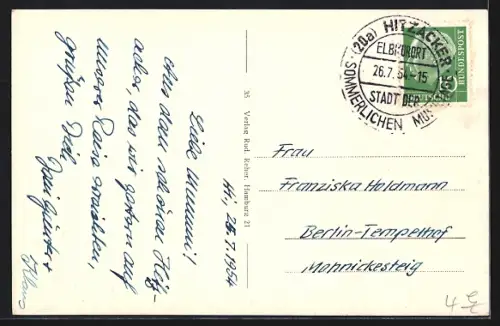 (20a) HITZACKER
ELBKURORT
26.7.54.-15
STADT DER
SOMMERLICHEN MUSIK
BUNDESPOST
35 Verlag Rud. Reher, Hamburg 21
Hi, 25.7.1954
Liebe Mummi!
Aus dem schönen Hitz-
acker, das wir gestern auf
unserer Reise erreichten,
grüßen Dich
Klaus
Frau
Franziska Holdmann
Berlin-Tempelhof
Monnickesteig